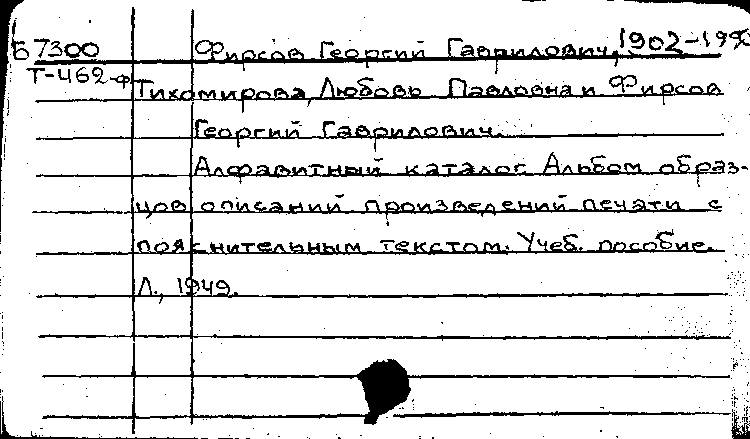 Б 7300 Фирсов Георгий Гаврилович, 1902-199
Т-462-ф Тихомирова, Любовь Павловна и Фирсов
Георгий Гаврилович.
Алфавитный каталог. Альбом образ-
цов описаний произведений печати с
пояснительным текстом. Учеб. пособие.
Л., 1949.